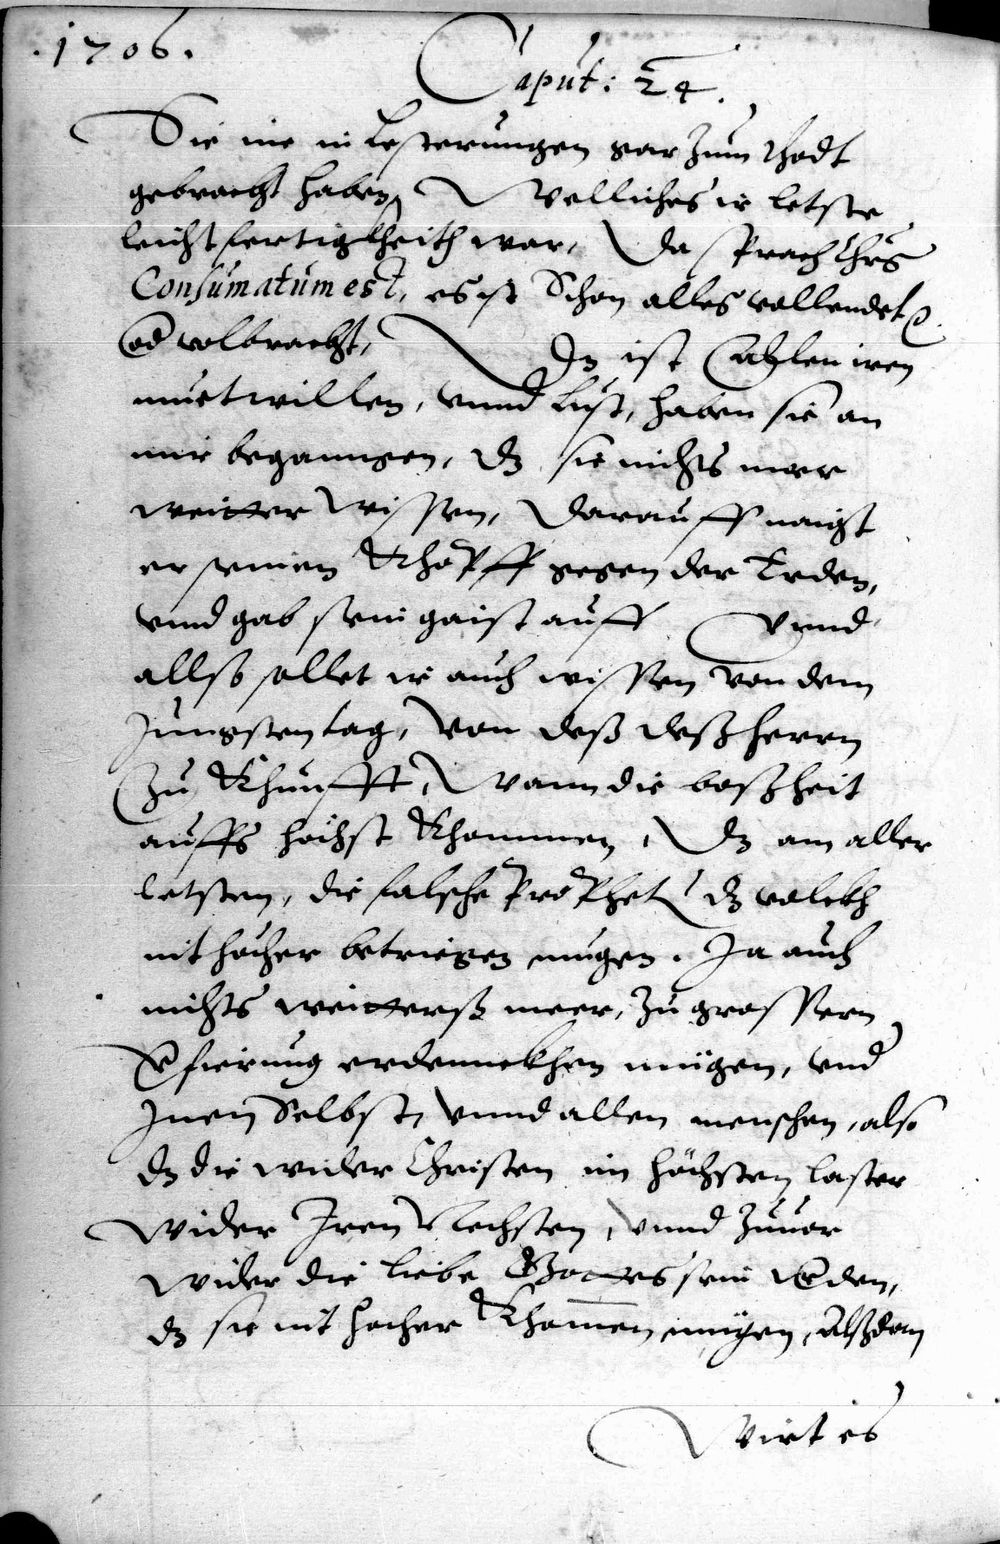 .1706.
Caput: 24.
Sie mie in Lesterungen gar zum Thodt
gebracht haben, Welliches ir letste
leichtfertigkheith war, Da sprach Chrs
Consumatum est, es ist Schon alles vollendet
od volbracht, Dz ist allen iren
muetwillen, vnnd Lust, haben sie an
mir begangen, dz sie nichts meer
weitter wissen, Darauff naigt
er seinen Khopff gegen der Erden,
vnnd gab sein gaist auff Vnnd
allso sollet ir auch wissen von dem
Jungsten tag, von deß deß herrn
Zu Khunfft, Wann die boßheit
auffs höchst Khommen, Dz am aller
letsten, die falsche Prophet dz volckh
nit höcher betriegen mugen. Ja auch
nichts weitterß meer, zu grossern
Vfierung erdennckhen mügen, vnd
Jnen Selbst, vnnd allen menschen, also
dz die wider Christen im höchsten laster
wider Jren Nechsten, vnnd zuuor
wider die liebe Gottes sein werden,
dz sie nit höcher Khomen mügen, Alßdan
Wirt es